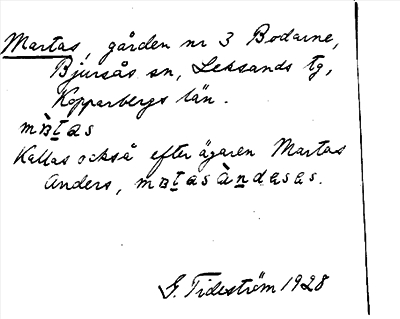 Martas, gården nr 3 Bodarne,
Bjursås sn, Leksands tg,
Kopparbergs län.
màt̲as
Kallas också efter ägaren Martas
Anders, mat̲as àn̲dasas.
G. Tideström 1928